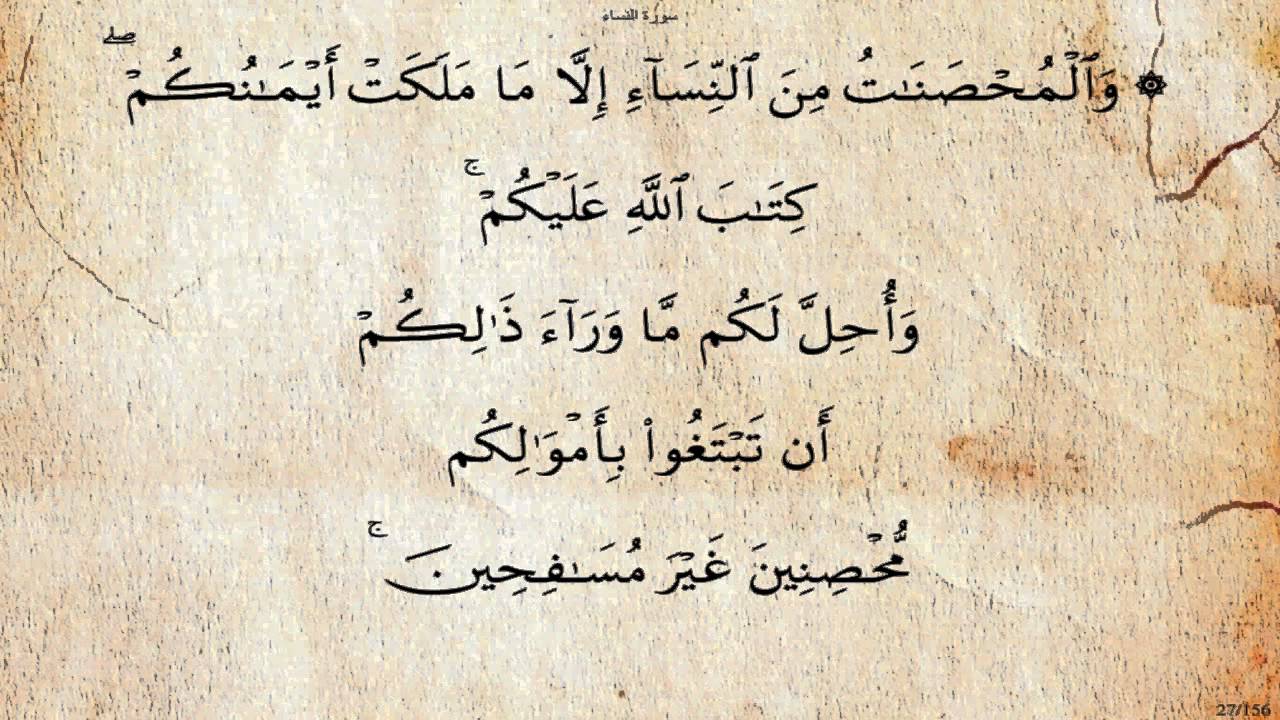 سورة النساء
۞ وَٱلْمُحْصَنَـٰتُ مِنَ ٱلنِّسَآءِ إِلَّا مَا مَلَكَتْ أَيْمَـٰنُكُمْ ۖ
كِتَـٰبَ ٱللَّهِ عَلَيْكُمْ ۚ
وَأُحِلَّ لَكُم مَّا وَرَآءَ ذَٰلِكُمْ
أَن تَبْتَغُوا۟ بِأَمْوَٰلِكُم
مُّحْصِنِينَ غَيْرَ مُسَـٰفِحِينَ ۚ
27/156